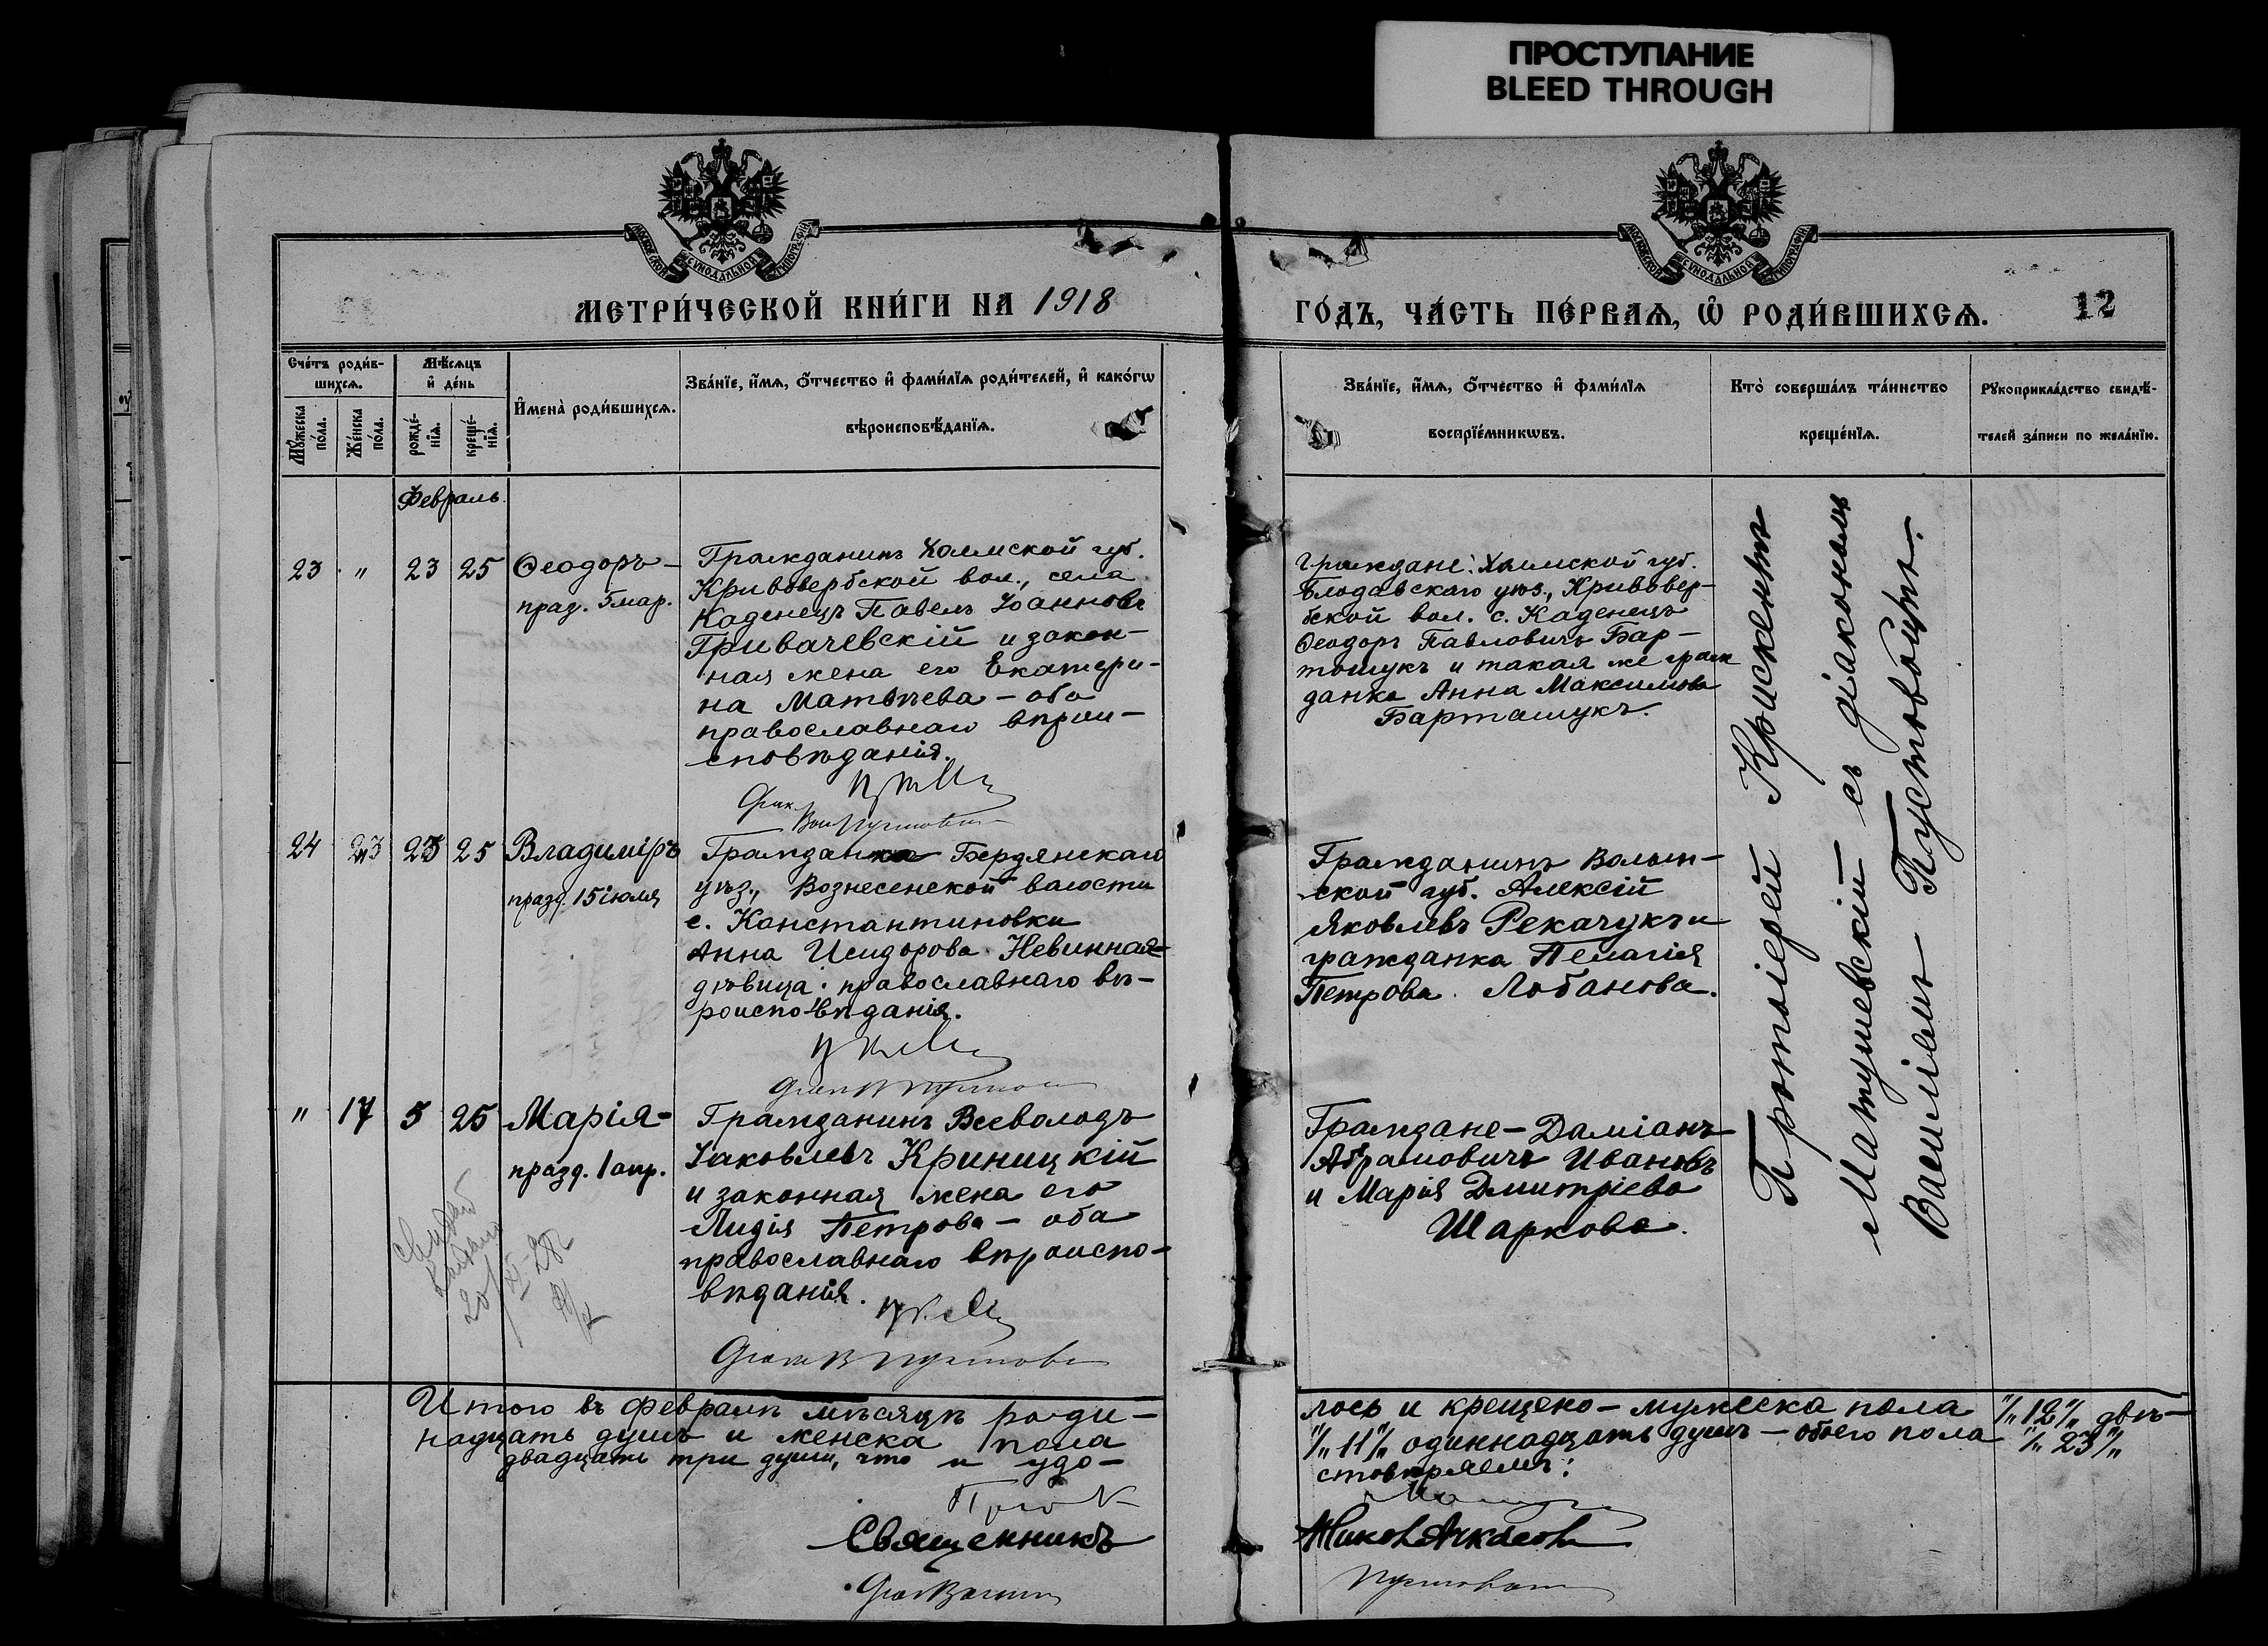 ПРОСТУПАНИЕ
BLEED THROUGH
МОСКОВСКОЙ СѴНОДАЛЬНОЙ ТИПОГРАФІИ
МОСКОВСКОЙ СѴНОДАЛЬНОЙ ТИПОГРАФІИ
МЕТРИ́ЧЕСКОЙ КНИ́ГИ НА 1918
ГО́ДЪ, ЧА́СТЬ ПЕ́РВАѦ, Ѡ҆ РОДИ́ВШИХСѦ.
12
Сче́тъ роди́в-
шихсѧ.
Мꙋ́жеска по́ла.
Же́нска по́ла.
Мѣ́сѧцъ
и҆ де́нь
рожде́-
нїѧ.
креще́-
нїѧ.
И҆мена̀ роди́вшихсѧ.
Зва́нїе, и҆́мѧ, ѻ҆́тчество и҆ фами́лїѧ роди́телей, и҆ како́гѡ
вѣроисповѣ́данїѧ.
Зва́нїе, и҆́мѧ, ѻ҆́тчество и҆ фами́лїѧ
воспрїе́мникѡвъ.
Кто̀ соверша́лъ та́инство
креще́нїѧ.
Рꙋкоприкла́дство свидѣ́-
телей за́писи по жела́нїю.
Февраль.
23 " 23 25
Ѳеодоръ-
праз. 5 мар.
Гражданинъ Холмской губ.
Кривовербской вол., села
Каденецъ Павелъ Іоанновъ
Гривачевскій и закон-
ная жена его Екатери-
на Матѳѣева - оба
православнаго вѣрои-
сповѣданія.
Граждане: Холмской губ.
Влодавскаго уѣз., Кривовер-
бской вол. с. Каденецъ
Ѳеодоръ Павловичъ Бар-
тошукъ и такая же граж
данка Анна Максимова
Барташукъ.
24 23 25
Владиміръ
празд. 15 іюля
Гражданка Бердянскаго
уѣз., Вознесенской волости
с. Константиновки
Анна Исидорова Невинная-
дѣвица; православнаго вѣ-
роисповѣданія.
Гражданинъ Волын-
ской губ. Алексій
Яковлевъ Рекачукъ и
гражданка Пелагія
Петрова Лобанова.
" 17 5 25
Марія-
празд. 1 апр.
Гражданинъ Всеволодъ
Іаковлевъ Криницкій
и законная жена его
Лидія Петрова - оба
православнаго вѣроиспо-
вѣданія.
Граждане - Даміанъ
Абрамовичъ Ивановъ
и Марія Димитріева
Шаркова.
Протоіерей Крискентъ
Матушевскій съ діакономъ
Василіемъ Пустовойтъ.
Итого въ Февралѣ мѣсяцѣ роди-
лось и крещено - мужеска пола "/"12"/" двѣ-
надцать душъ и женска пола
"/"11"/" одиннадцать душъ - обоего пола "/"23"/"
двадцать три души, что и удо-
стовѣряемъ:
Священникъ